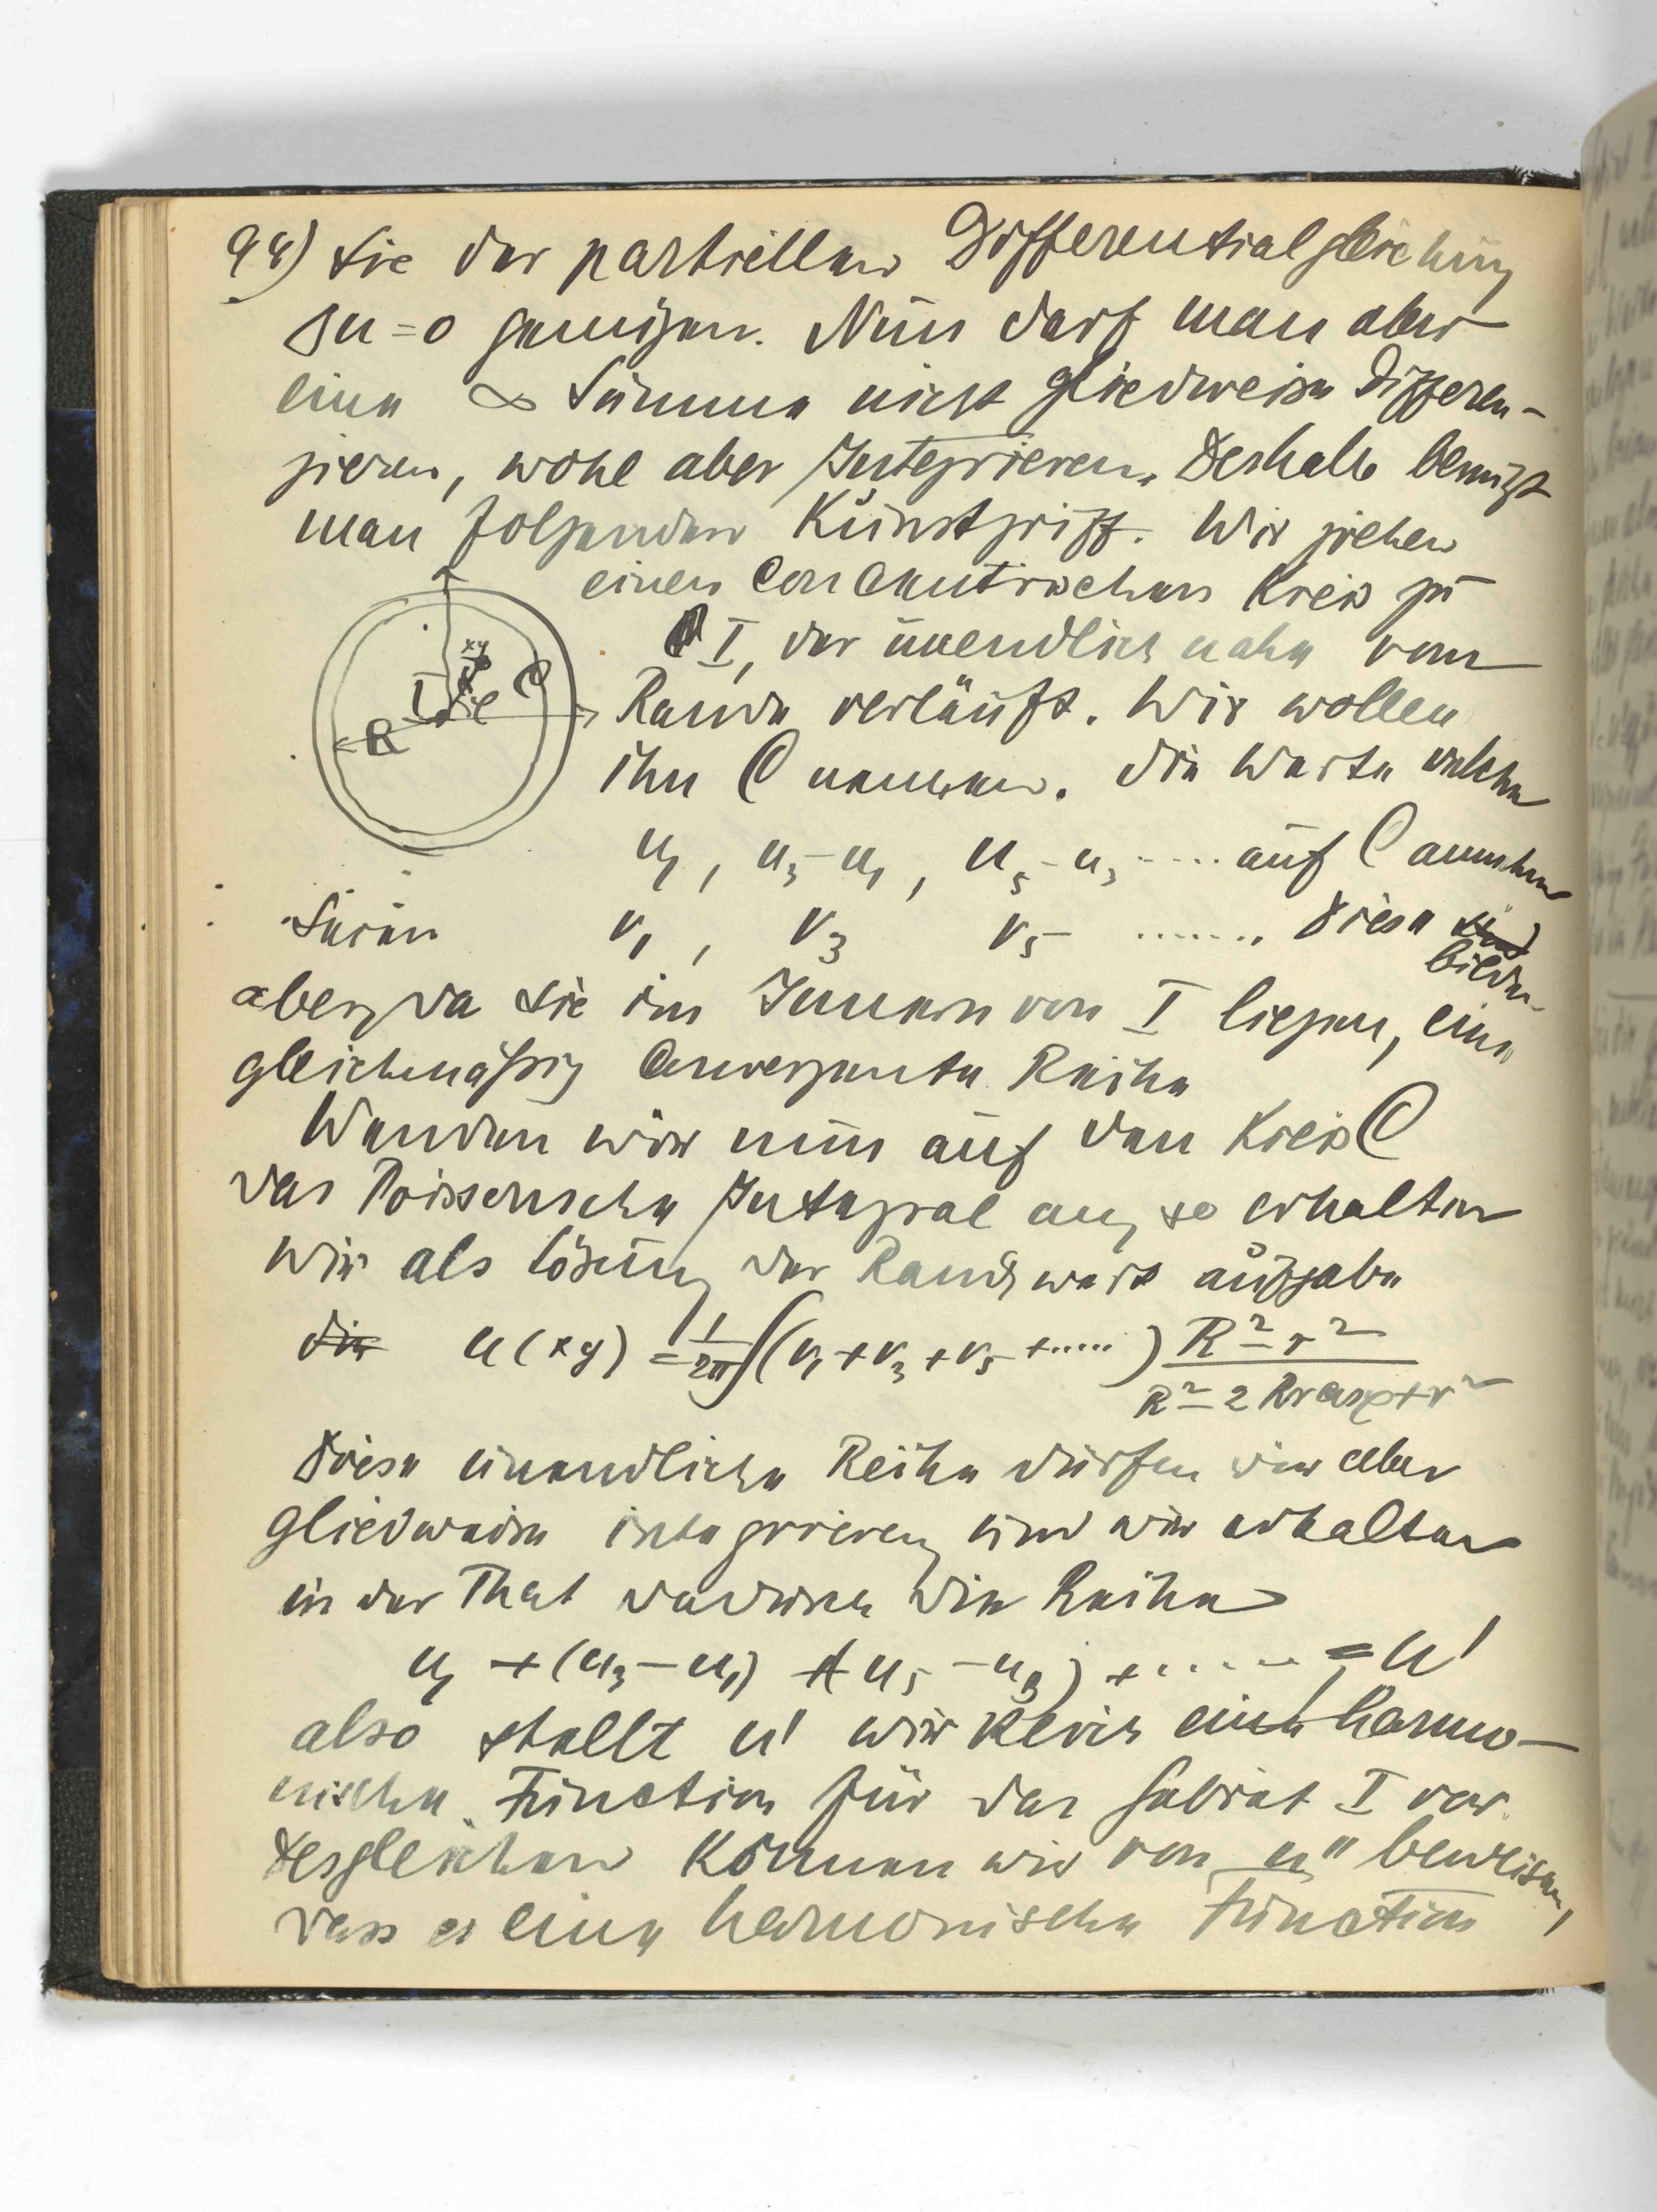 98) sie der partiellen Differentialgleichung
Δu = 0 genügen. Nun darf man aber
eine ∞ Summe nicht gliedweise Differen-
zieren, wohl aber Integrieren. Deshalb benutzt
man folgenden Kunstgriff. Wir ziehen
einen Concentrischen Kreis zu
I, der unendlich nahe vom
xy
I C
R
Rande verläuft. Wir wollen
ihn C nennen. Die Werte welche
u₁, u₃-u₁, u₅-u₃ ..... auf C annehmen
Seien v₁, v₃ v₅ ....... Diese sind
bilden
aber, da sie im Innern von I liegen, eine
gleichmäßig Convergente Reihe
Wenden wir nun auf den Kreis C
das Poissonsche Integral an, so erhalten
wir als Lösung der Randwert aufgabe
die u(xy) = 1/2π ∫(v₁+v₃+v₅+.....) R²-r² / R²-2Rr cosφ+r²
Diese unendliche Reihe dürfen wir aber
gliedweise integrieren, und wir erhalten
in der That dadurch die Reihe
u₁ + (u₃-u₁) + (u₅-u₃) + ...... = u'
also stellt u' wirklich eine harmo-
nische Function für das Gebiet I vor.
Desgleichen können wir von u'' beweisen,
dass es eine harmonische Function